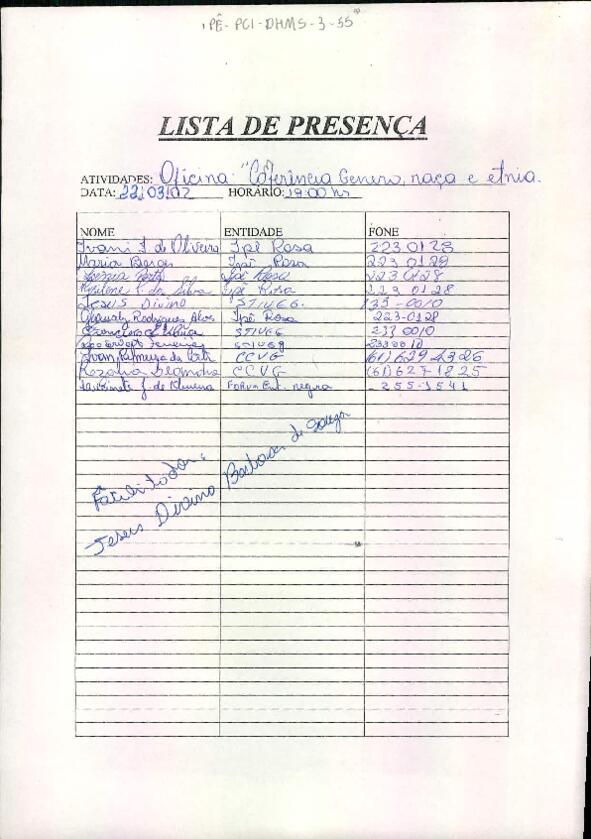 IPÊ-PCI-DHMS-3-55
LISTA DE PRESENÇA
ATIVIDADES: Oficina: "Coferência Genero, raça e etnia.
DATA: 22/03/02 HORÁRIO: 19:00 hs
NOME ENTIDADE FONE
Ivani J. de Oliveira Ipê Rosa 223 0128
Maria Ipê Rosa 223 0129
Ipê Rosa 223 0128
da Silva Ipê Rosa 223 0128
Jesus Divino STIUEG. -0010
Rodrigues Alves Ipê Rosa 223-0128
STIUEG 233 0010
Ferreira STIUEG 2330010
Ivan da CCVG (61) 629
Rozana CCVG (61) 627 1825
J. de Oliveira Forum Ent. negra 255-1541
Facilitador:
Jesus Divino Barbosa de Souza